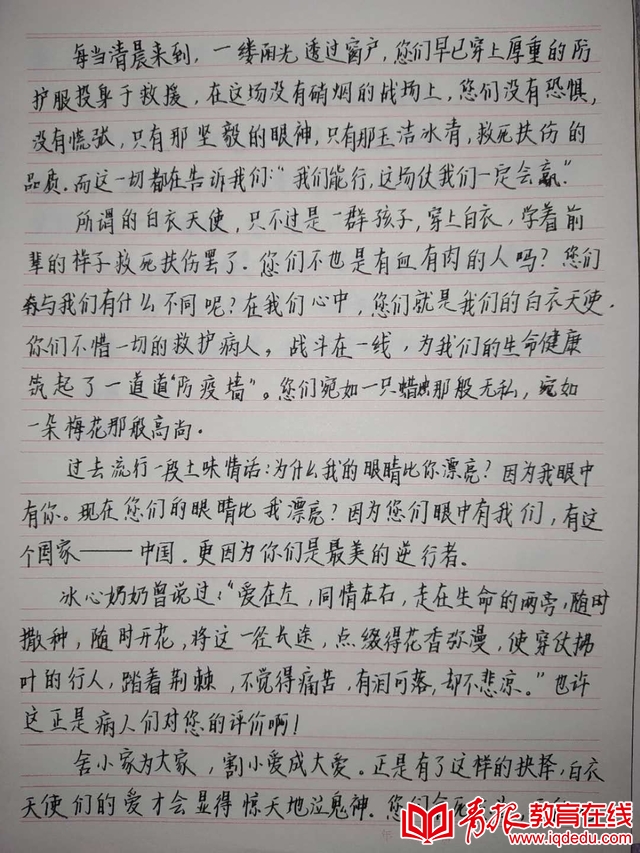 每当清晨来到，一缕阳光透过窗户，您们早已穿上厚重的防
护服投身于救援，在这场没有硝烟的战场上，您们没有恐惧，
没有慌张，只有那坚毅的眼神，只有那玉洁冰清，救死扶伤的
品质。而这一切都在告诉我们：“我们能行，这场仗我们一定会赢”
所谓的白衣天使，只不过是一群孩子，穿上白衣，学着前
辈的样子救死扶伤罢了。您们不也是有血有肉的人吗？您们
与我们有什么不同呢？在我们心中，您们就是我们的白衣天使。
你们不惜一切的救护病人，战斗在一线，为我们的生命健康
筑起了一道道“防疫墙”。您们宛如一只蜡烛那般无私，宛如
一朵梅花那般高尚。
过去流行一段土味情话：为什么我的眼睛比你漂亮？因为我眼中
有你。现在您们的眼睛比我漂亮？因为您们眼中有我们，有这
个国家——中国。更因为你们是最美的逆行者。
冰心奶奶曾说过：“爱在左，同情在右，走在生命的两旁，随时
撒种，随时开花，将这一径长途，点缀得花香弥漫，使穿仗拂
叶的行人，踏着荆棘，不觉得痛苦，有泪可落，却不悲凉。”也许
这正是病人们对您的评价啊！
舍小家为大家，割小爱成大爱。正是有了这样的抉择，白衣
天使们的爱才会显得惊天地泣鬼神。您们
青报教育在线
www.iqdedu.com